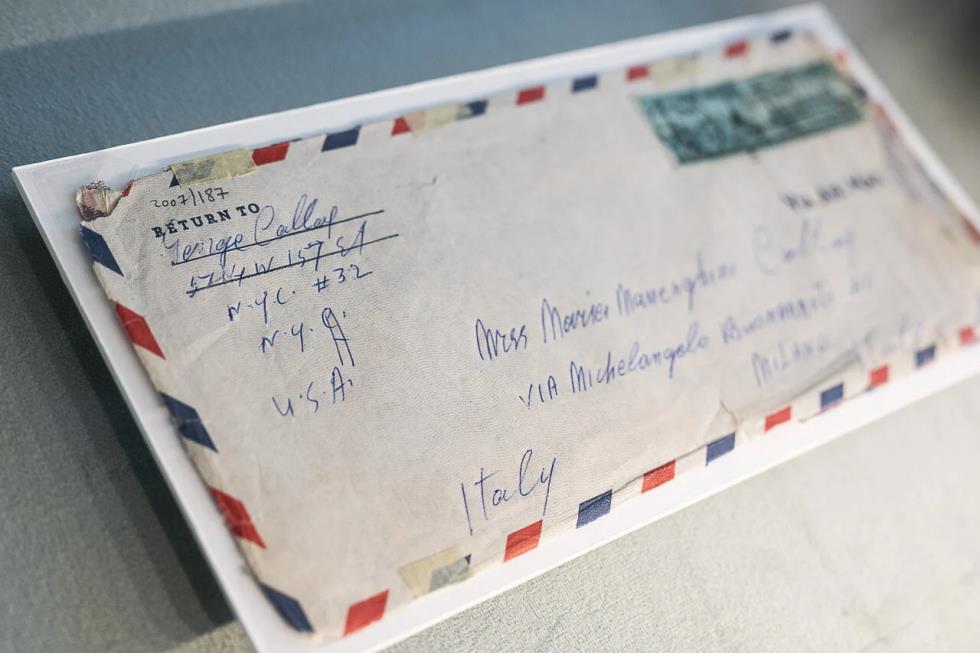 2007/187
RETURN TO
George Callas
W 157 St
N.Y.C. #32
N.Y.
U.S.A.
Via Air Mail
Mrs Maria Meneghini Callas
VIA Michelangelo Buonarroti
Milano Italy
Italy